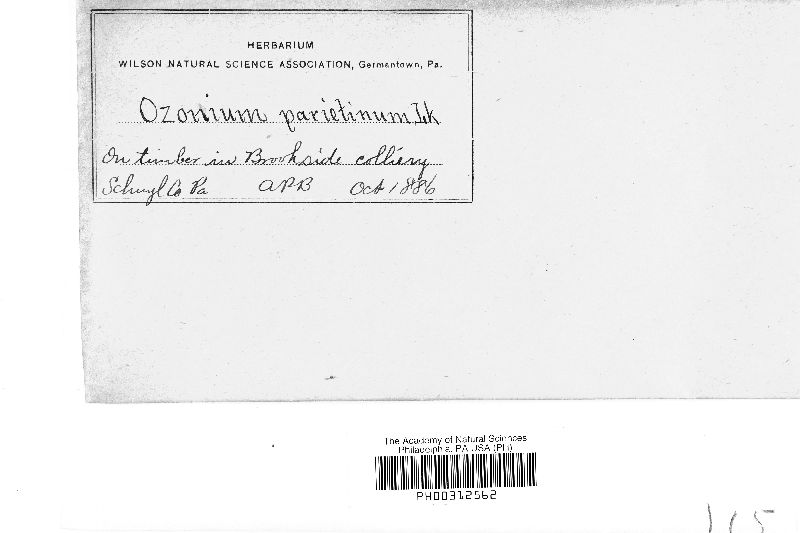 HERBARIUM
WILSON NATURAL SCIENCE ASSOCIATION, Germantown, Pa.
Ozonium parietinum Lk
On timber in Brookside colliery
Schuyl Co Pa APB Oct 1886
The Academy of Natural Sciences
Philadelphia, PA USA (PH)
PH00312562
115